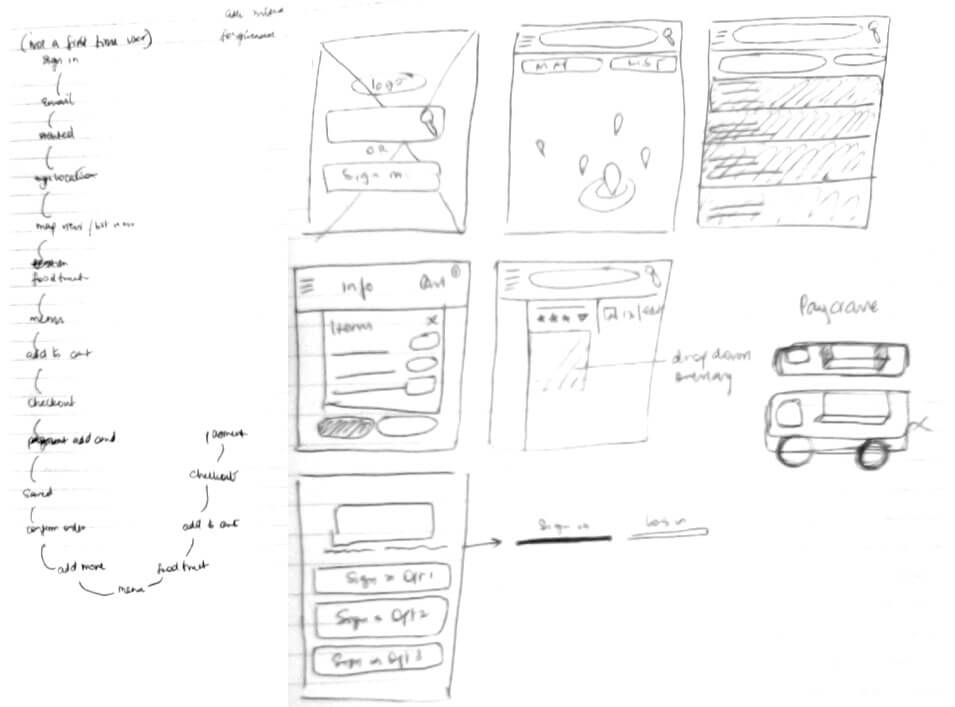 (Not a first time user)
sign in
email
location
map view / list view
food truck
menu
add to cart
checkout
add card
saved
confirm order
add more
menu
food truck
add to cart
checkout
payment
logo
OR
Sign in
MAP
LIST
Info
Cart
Items
X
drop down
Sign in Opt 1
Sign in Opt 2
Sign in Opt 3
Sign in
Log in